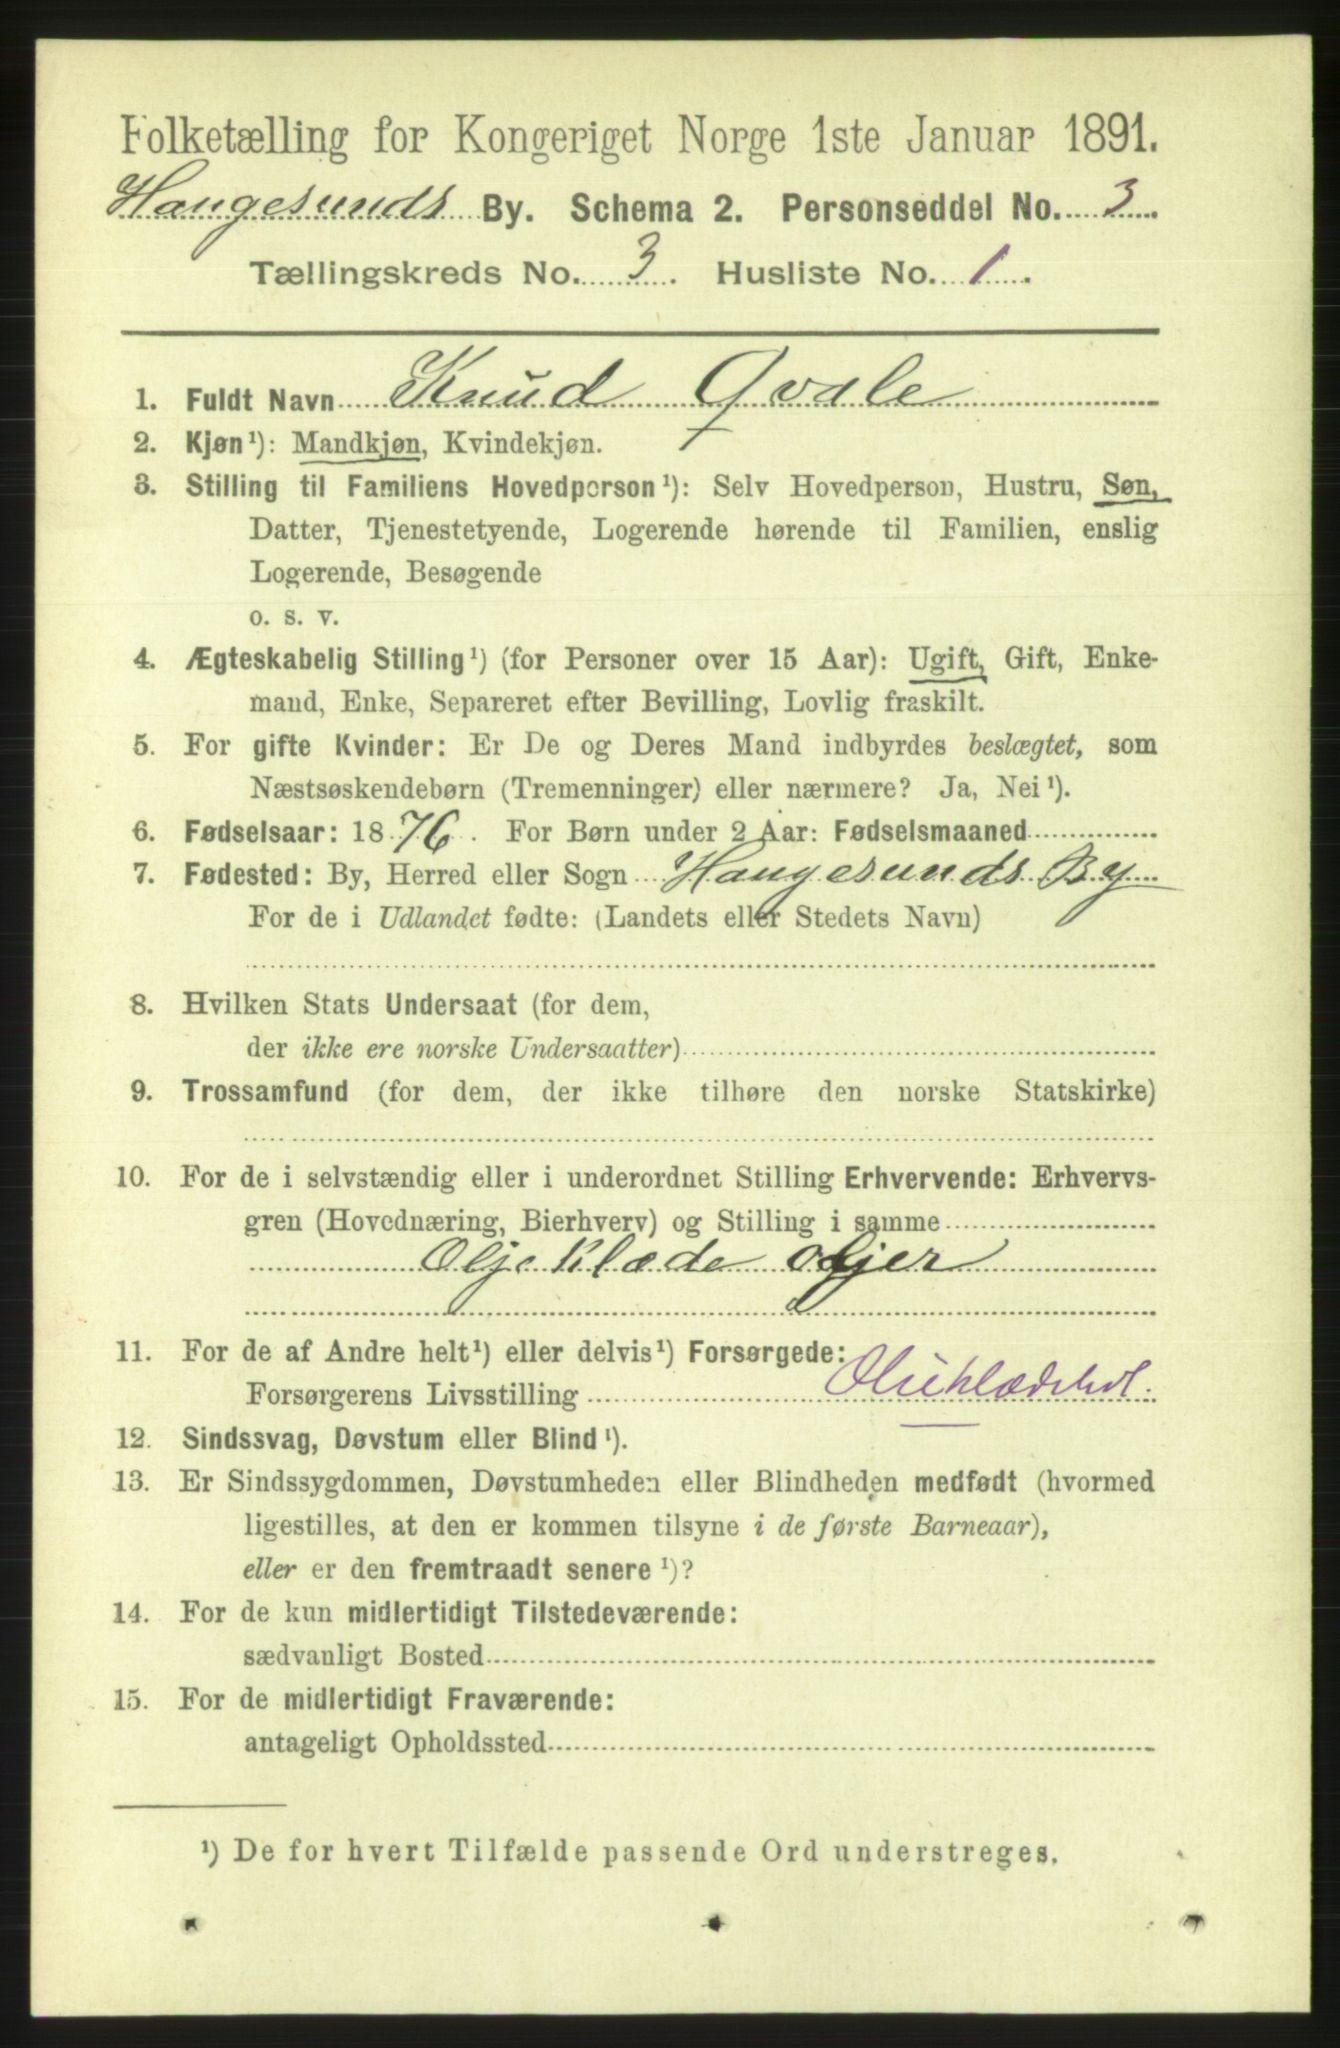 Folketælling for Kongeriget Norge 1ste Januar 1891.
Haugesunds By. Schema 2. Personseddel No. 3
Tællingskreds No. 3. Husliste No. 1.
1. Fuldt Navn Knud Qvale
2. Kjøn¹): Mandkjøn, Kvindekjøn.
3. Stilling til Familiens Hovedperson¹): Selv Hovedperson, Hustru, Søn,
Datter, Tjenestetyende, Logerende hørende til Familien, enslig
Logerende, Besøgende
o. s. v.
4. Ægteskabelig Stilling¹) (for Personer over 15 Aar): Ugift, Gift, Enke-
mand, Enke, Separeret efter Bevilling, Lovlig fraskilt.
5. For gifte Kvinder: Er De og Deres Mand indbyrdes beslægtet, som
Næstsøskendebørn (Tremenninger) eller nærmere? Ja, Nei¹).
6. Fødselsaar: 1876. For Børn under 2 Aar: Fødselsmaaned
7. Fødested: By, Herred eller Sogn Haugesunds By
For de i Udlandet fødte: (Landets eller Stedets Navn)
8. Hvilken Stats Undersaat (for dem,
der ikke ere norske Undersaatter)
9. Trossamfund (for dem, der ikke tilhøre den norske Statskirke)
10. For de i selvstændig eller i underordnet Stilling Erhvervende: Erhvervs-
gren (Hovednæring, Bierhverv) og Stilling i samme
Oljeklæde oljer
11. For de af Andre helt¹) eller delvis¹) Forsørgede:
Forsørgerens Livsstilling
12. Sindssvag, Døvstum eller Blind¹).
13. Er Sindssygdommen, Døvstumheden eller Blindheden medfødt (hvormed
ligestilles, at den er kommen tilsyne i de første Barneaar),
eller er den fremtraadt senere¹)?
14. For de kun midlertidigt Tilstedeværende:
sædvanligt Bosted
15. For de midlertidigt Fraværende:
antageligt Opholdssted
¹) De for hvert Tilfælde passende Ord understreges.